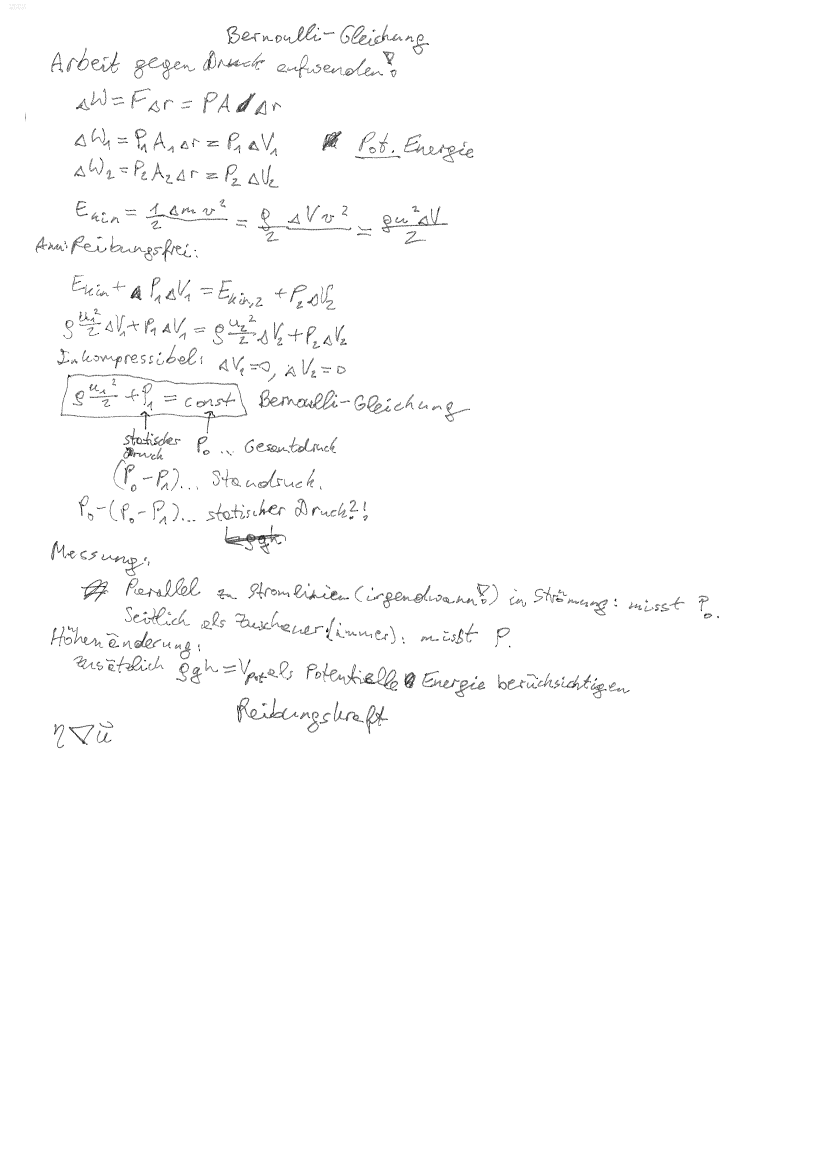 Bernoulli-Gleichung
Arbeit gegen Druck aufwenden!
ΔW = FΔr = PA Δr
ΔW₁ = P₁A₁Δr = P₁ΔV₁ Pot. Energie
ΔW₂ = P₂A₂Δr = P₂ΔV₂
E_kin = 1Δmv²/2 = ρΔVv²/2 = ρu²ΔV/2
Ann: Reibungsfrei:
E_kin + P₁ΔV₁ = E_kin,2 + P₂ΔV₂
ρ u₁²/2 ΔV₁ + P₁ΔV₁ = ρ u₂²/2 ΔV₂ + P₂ΔV₂
Inkompressibel: ΔV₁=0, ΔV₂=0
ρ u₁²/2 + P₁ = const Bernoulli-Gleichung
statischer Druck P₀ ... Gesamtdruck
(P₀-P₁)... Staudruck.
P₀-(P₀-P₁)... statischer Druck?!
Messung:
Parallel zu Stromlinien (irgendwann!) in Strömung: misst P₀.
Seitlich als Zuschauer (immer): mißt P.
Höhenänderung:
zusätzlich ρgh = V_pot als Potentielle Energie berücksichtigen
Reibungskraft
η∇u⃗